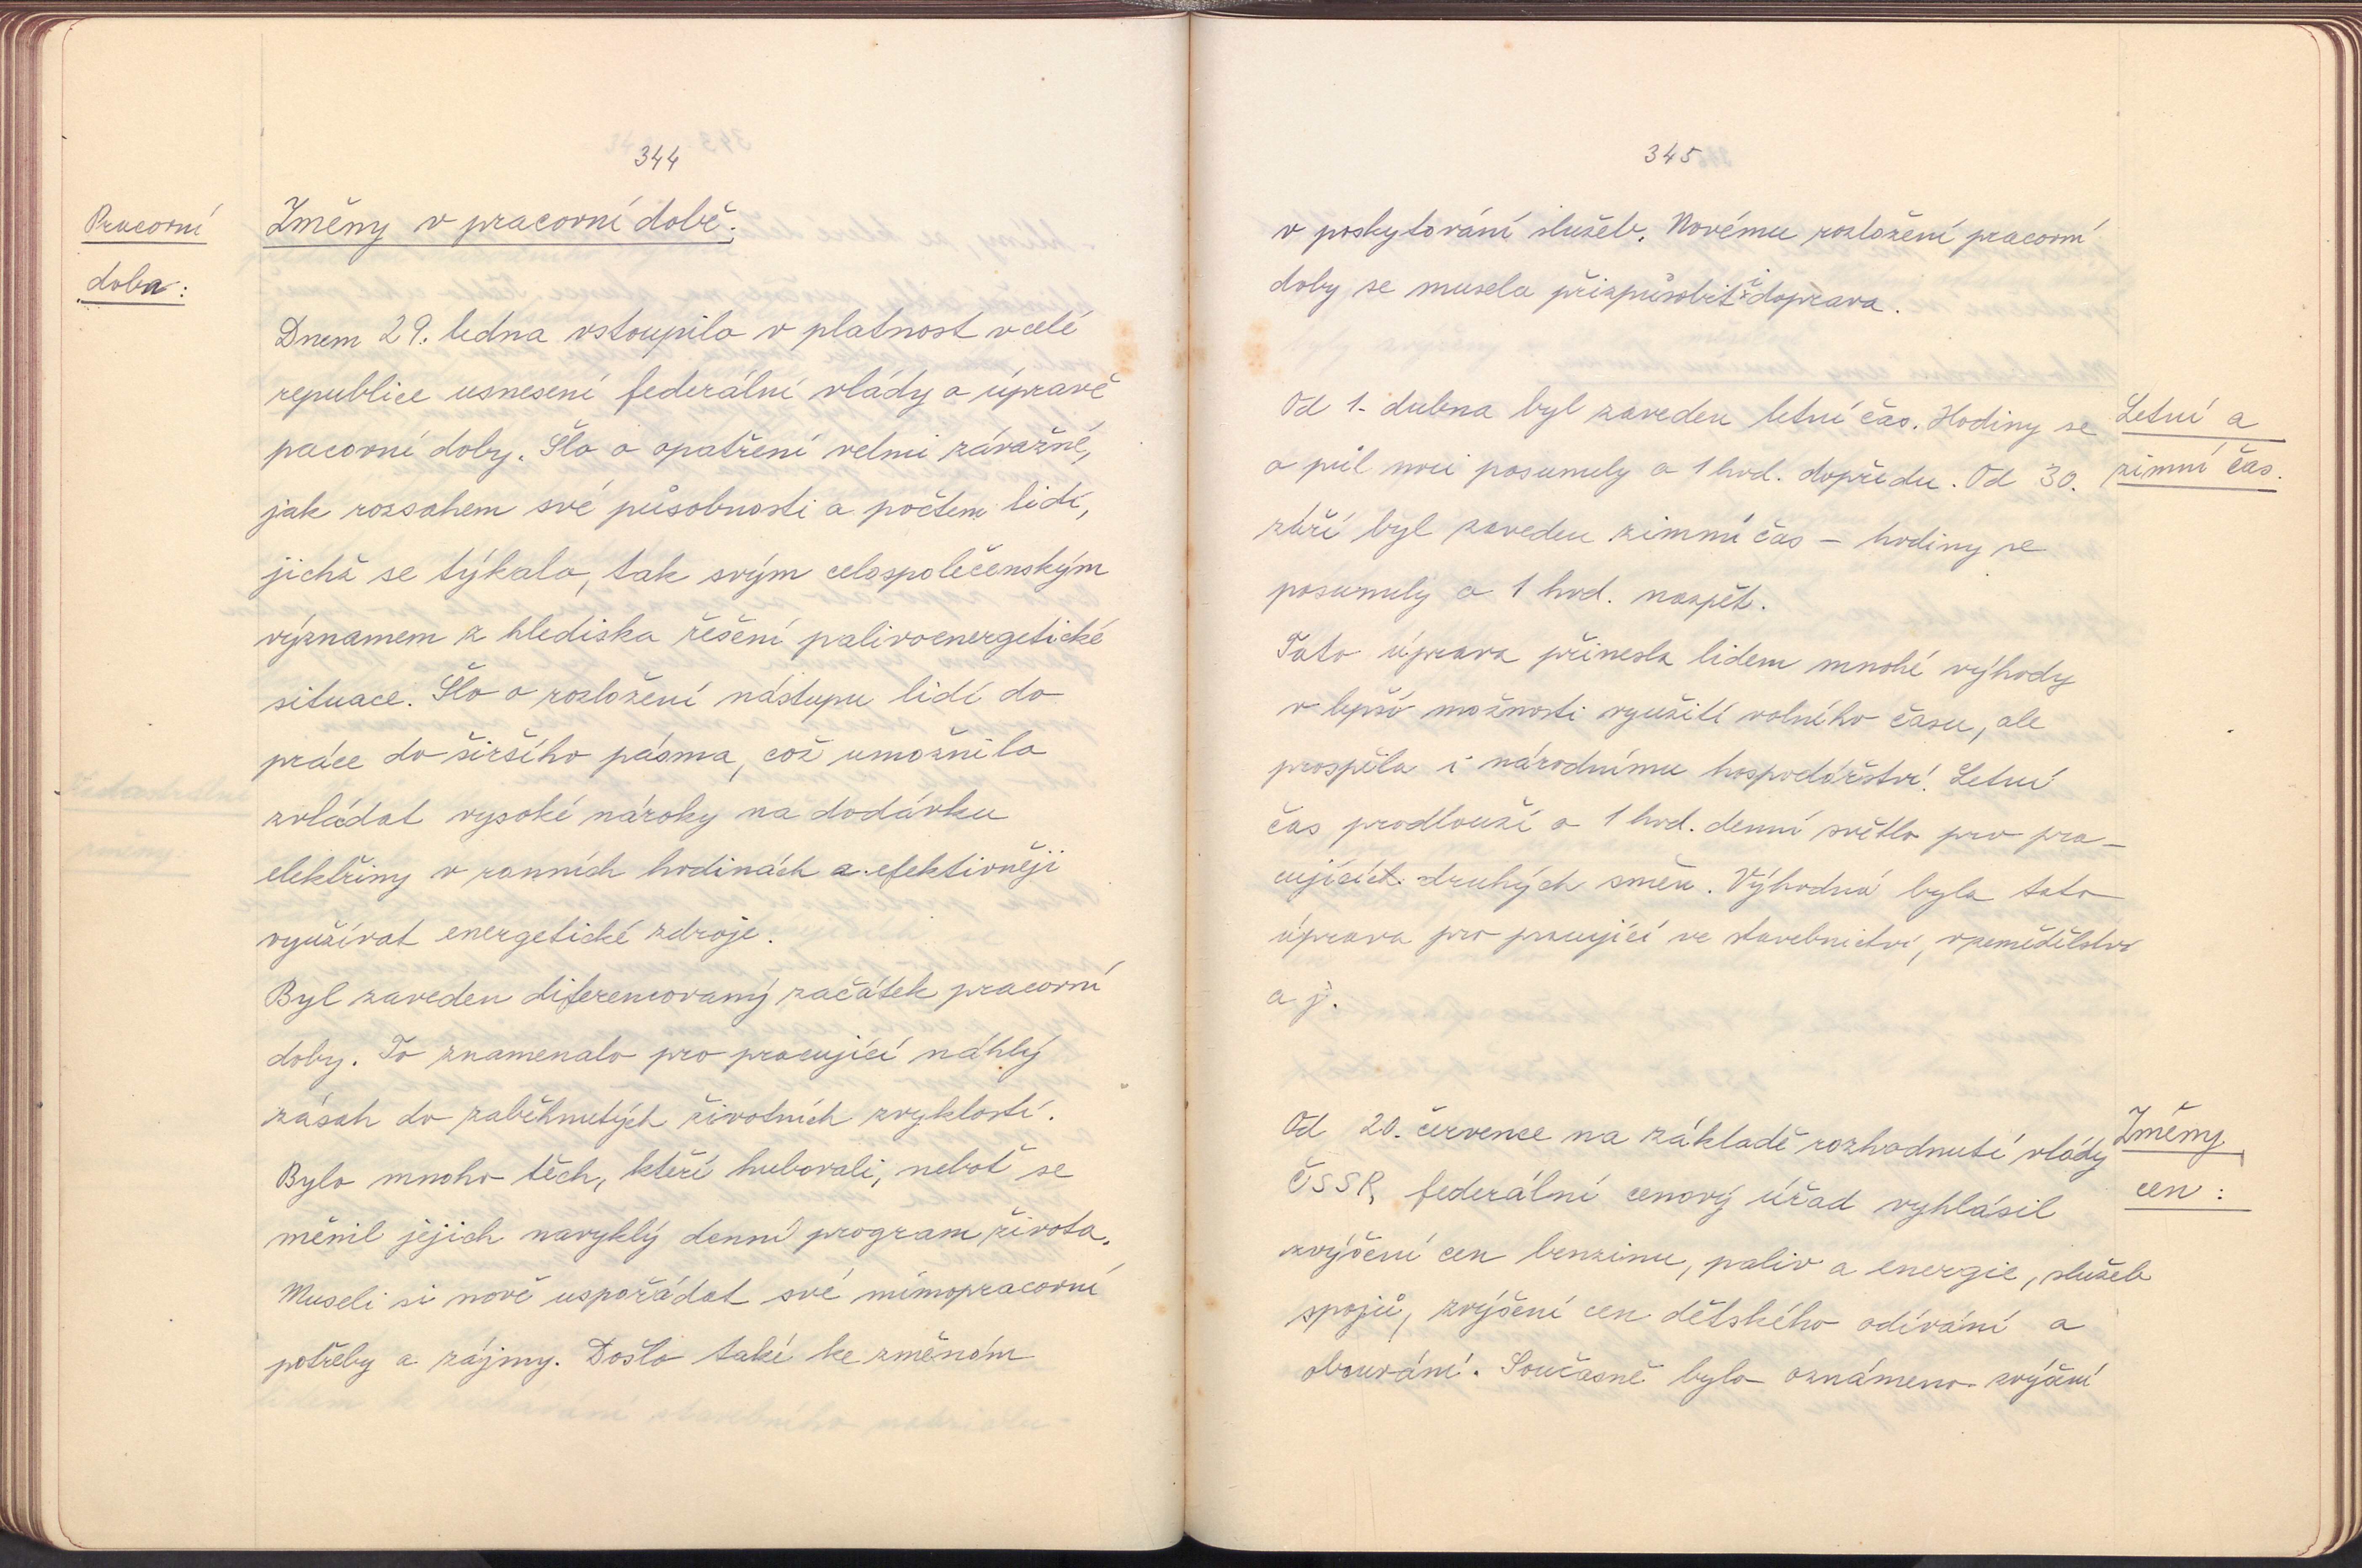 344
Pracovní
doba:
Změny v pracovní době:
Dnem 29. ledna vstoupilo v platnost v celé
republice usnesení federální vlády o úpravě
pacovní doby. Šlo o opatření velmi závažné,
jak rozsahem své působnosti a počtem lidí,
jichž se týkalo, tak svým celospolečenským
významem z hlediska řešení palivoenergetické
situace. Šlo o rozložení nástupu lidí do
práce do širšího pásma, což umožnilo
zvládat vysoké nároky na dodávku
elektřiny v ranních hodinách a efektivněji
využívat energetické zdroje.
Byl zaveden diferencovaný začátek pracovní
doby. To znamenalo pro pracující náhlý
zásah do zaběhnutých životních zvyklostí.
Bylo mnoho těch, kteří hubovali, neboť se
měnil jejich navyklý denní program života.
Museli si nově uspořádat své mimopracovní
potřeby a zájmy. Došlo také ke změnám
345
v poskytování služeb. Novému rozložení pracovní
doby se musela přizpůsobit i doprava.
Od 1. dubna byl zaveden letní čas. Hodiny se
o půl noci posunuly o 1 hod. dopředu. Od 30.
září byl zaveden zimní čas - hodiny se
posunuly o 1 hod. nazpět.
Letní a
zimní čas.
Tato úprava přinesla lidem mnohé výhody
v lepší možnosti využití volného času, ale
prospěla i národnímu hospodářství. Letní
čas prodlouží o 1 hod. denní světlo pro pra-
cujících druhých směn. Výhodná byla tato
úprava pro pracující ve stavebnictví, v zemědělství
a j.
Od 20. července na základě rozhodnutí vlády
ČSSR, federální cenový úřad vyhlásil
zvýšení cen benzinu, paliv a energie, služeb
spojů, zvýšení cen dětského odívání a
obouvání. Současně bylo oznámeno zvýšení
Změny
cen: